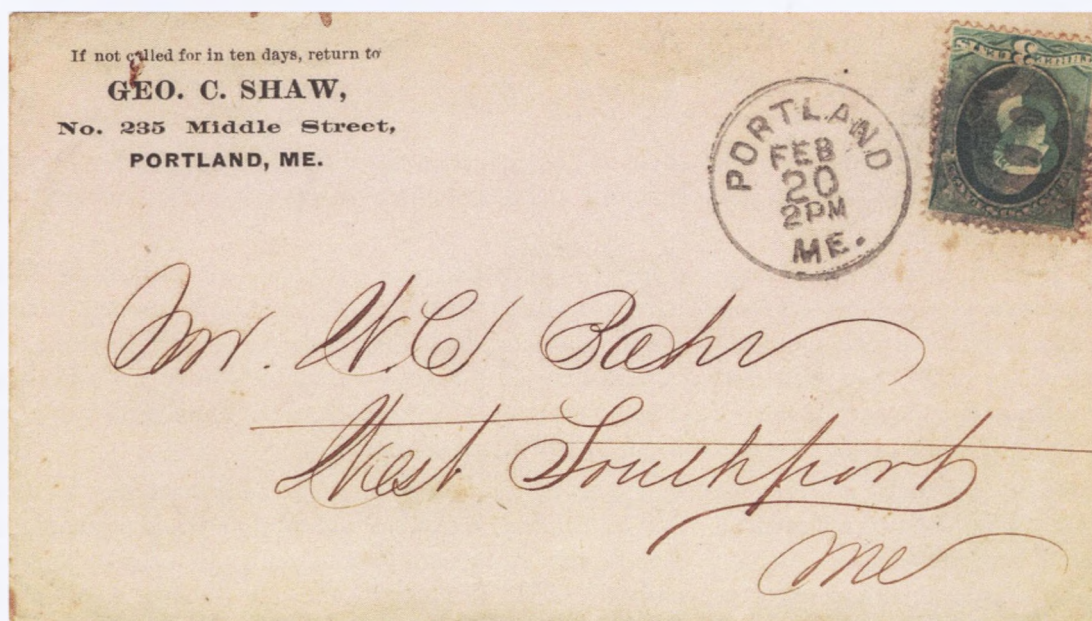 If not called for in ten days, return to
GEO. C. SHAW,
No. 235 Middle Street,
PORTLAND, ME.
PORTLAND
FEB
20
2PM
ME.
Mr. W. C.
West Southport
Me